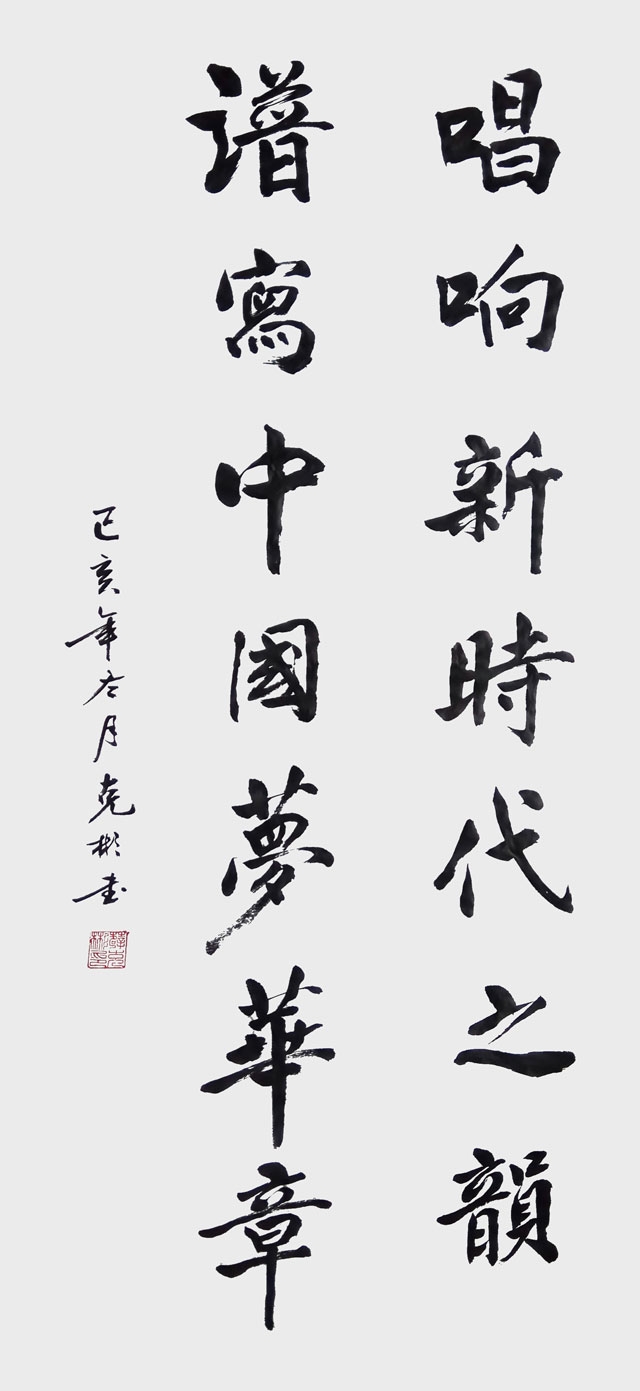 唱响新時代之韻
譜寫中國夢華章
己亥年冬月克彬书